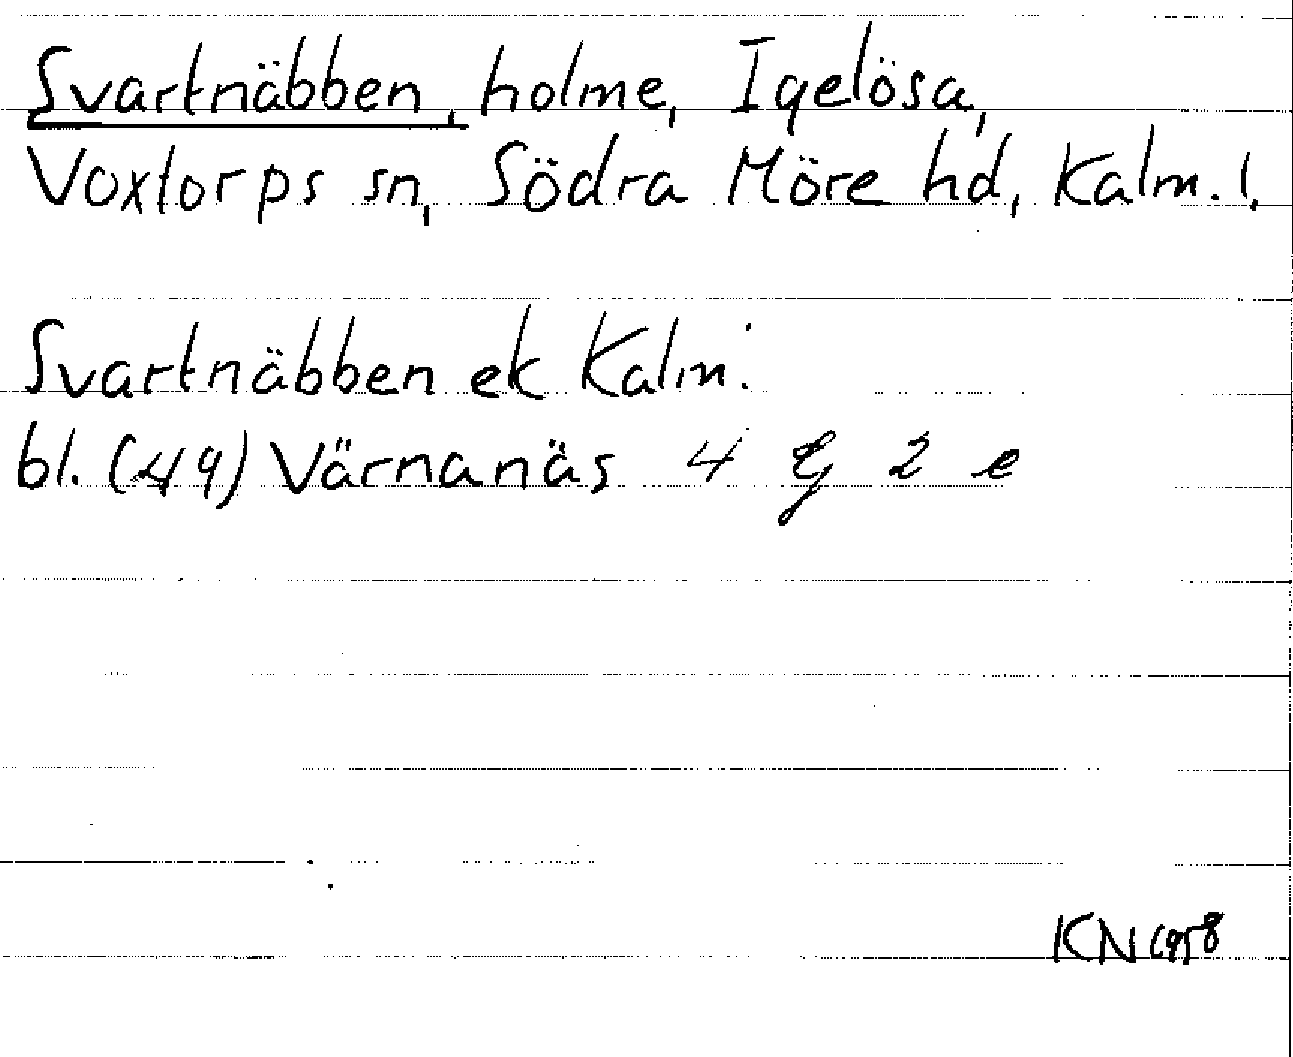 Svartnäbben, holme, Igelösa,
Voxtorps sn, Södra Möre hd, Kalm. l.
Svartnäbben ek Kalm.
bl. (49) Värnanäs 4 G 2 e
KN 1958